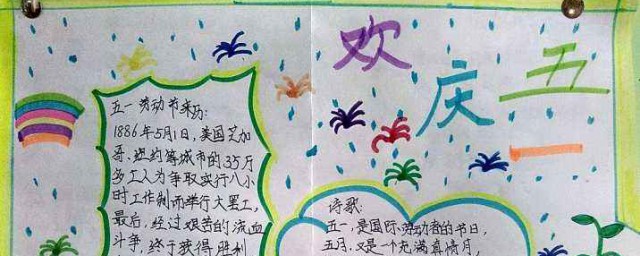 欢庆五一
五一劳动节来历:
1886年5月1日,美国芝加
哥、纽约等城市的35万
多工人为争取实行八小
时工作制而举行大罢工,
最后,经过艰苦的流血
斗争,终于获得胜利
诗歌:
五一,是国际劳动者的节日,
五月,又是一个充满真情月,